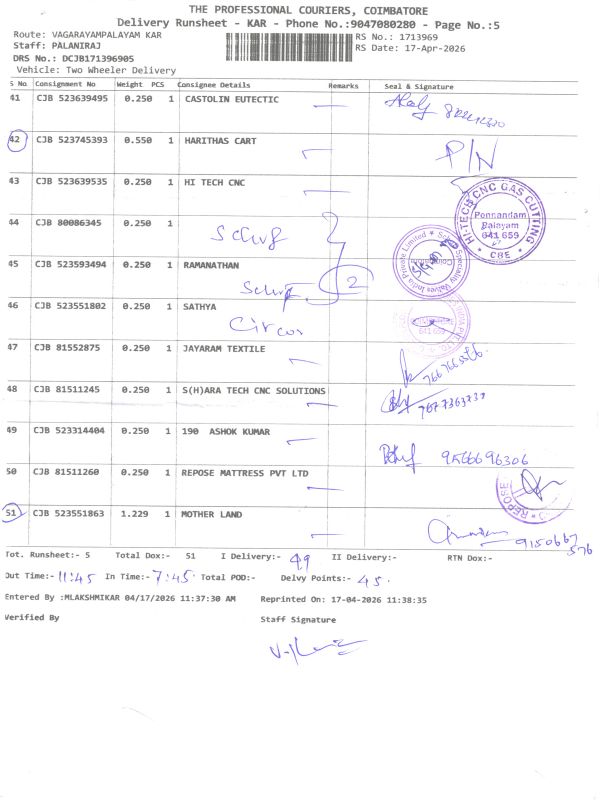 THE PROFESSIONAL COURIERS, COIMBATORE
Delivery Runsheet - KAR - Phone No.:9047080280 - Page No.:5
Route: VAGARAYAMPALAYAM KAR
RS No.: 1713969
Staff: PALANIRAJ
RS Date: 17-Apr-2026
DRS No.: DCJB171396905
Vehicle: Two Wheeler Delivery
S No. Consignment No Weight PCS Consignee Details Remarks Seal & Signature
41 CJB 523639495 0.250 1 CASTOLIN EUTECTIC
42 CJB 523745393 0.550 1 HARITHAS CART P/N
43 CJB 523639535 0.250 1 HI TECH CNC
HI-TECH CNC GAS CUTTING
Ponnandam
Palayam
641 659
CBE
44 CJB 80086345 0.250 1
45 CJB 523593494 0.250 1 RAMANATHAN
2
46 CJB 523551802 0.250 1 SATHYA
Circor
47 CJB 81552875 0.250 1 JAYARAM TEXTILE
48 CJB 81511245 0.250 1 S(H)ARA TECH CNC SOLUTIONS
7677363737
49 CJB 523314404 0.250 1 190 ASHOK KUMAR
9566696306
50 CJB 81511260 0.250 1 REPOSE MATTRESS PVT LTD
REPOSE
51 CJB 523551863 1.229 1 MOTHER LAND
9150667
576
Tot. Runsheet:- 5 Total Dox:- 51 I Delivery:- 49 II Delivery:- RTN Dox:-
Out Time:- 11:45 In Time:- 7:45 Total POD:- Delvy Points:- 45
Entered By :MLAKSHMIKAR 04/17/2026 11:37:30 AM Reprinted On: 17-04-2026 11:38:35
Verified By Staff Signature